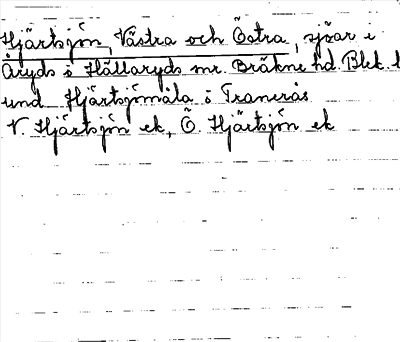 Hjärtsjön, Västra och Östra, sjöar i
Åryds o Hällaryds snr. Bräkne hd Blek. l
und. Hjärtsjömåla o Tranerås
V. Hjärtsjön ek, Ö. Hjärtsjön ek